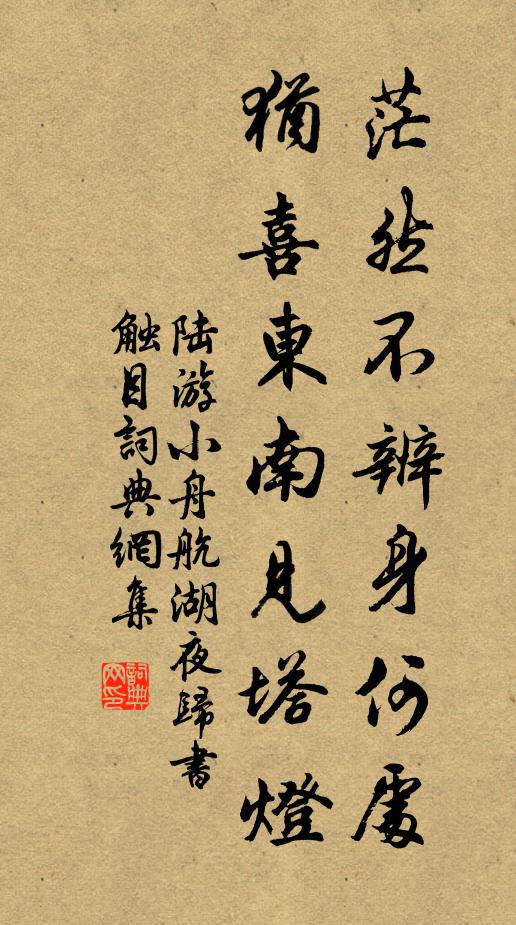 茫然不辨身何處
猶喜東南見塔燈
陆游小舟航湖夜歸書
触目詞典網集
詞典网印